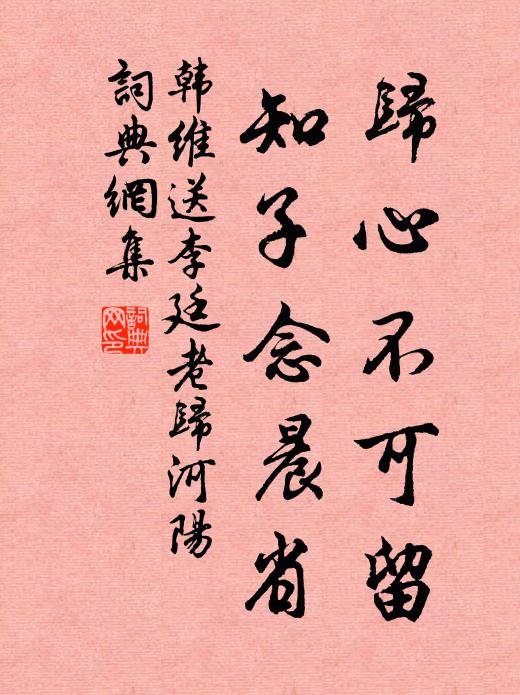 歸心不可留
知子念晨省
韩維送李廷老歸河陽
詞典網集
詞典網印